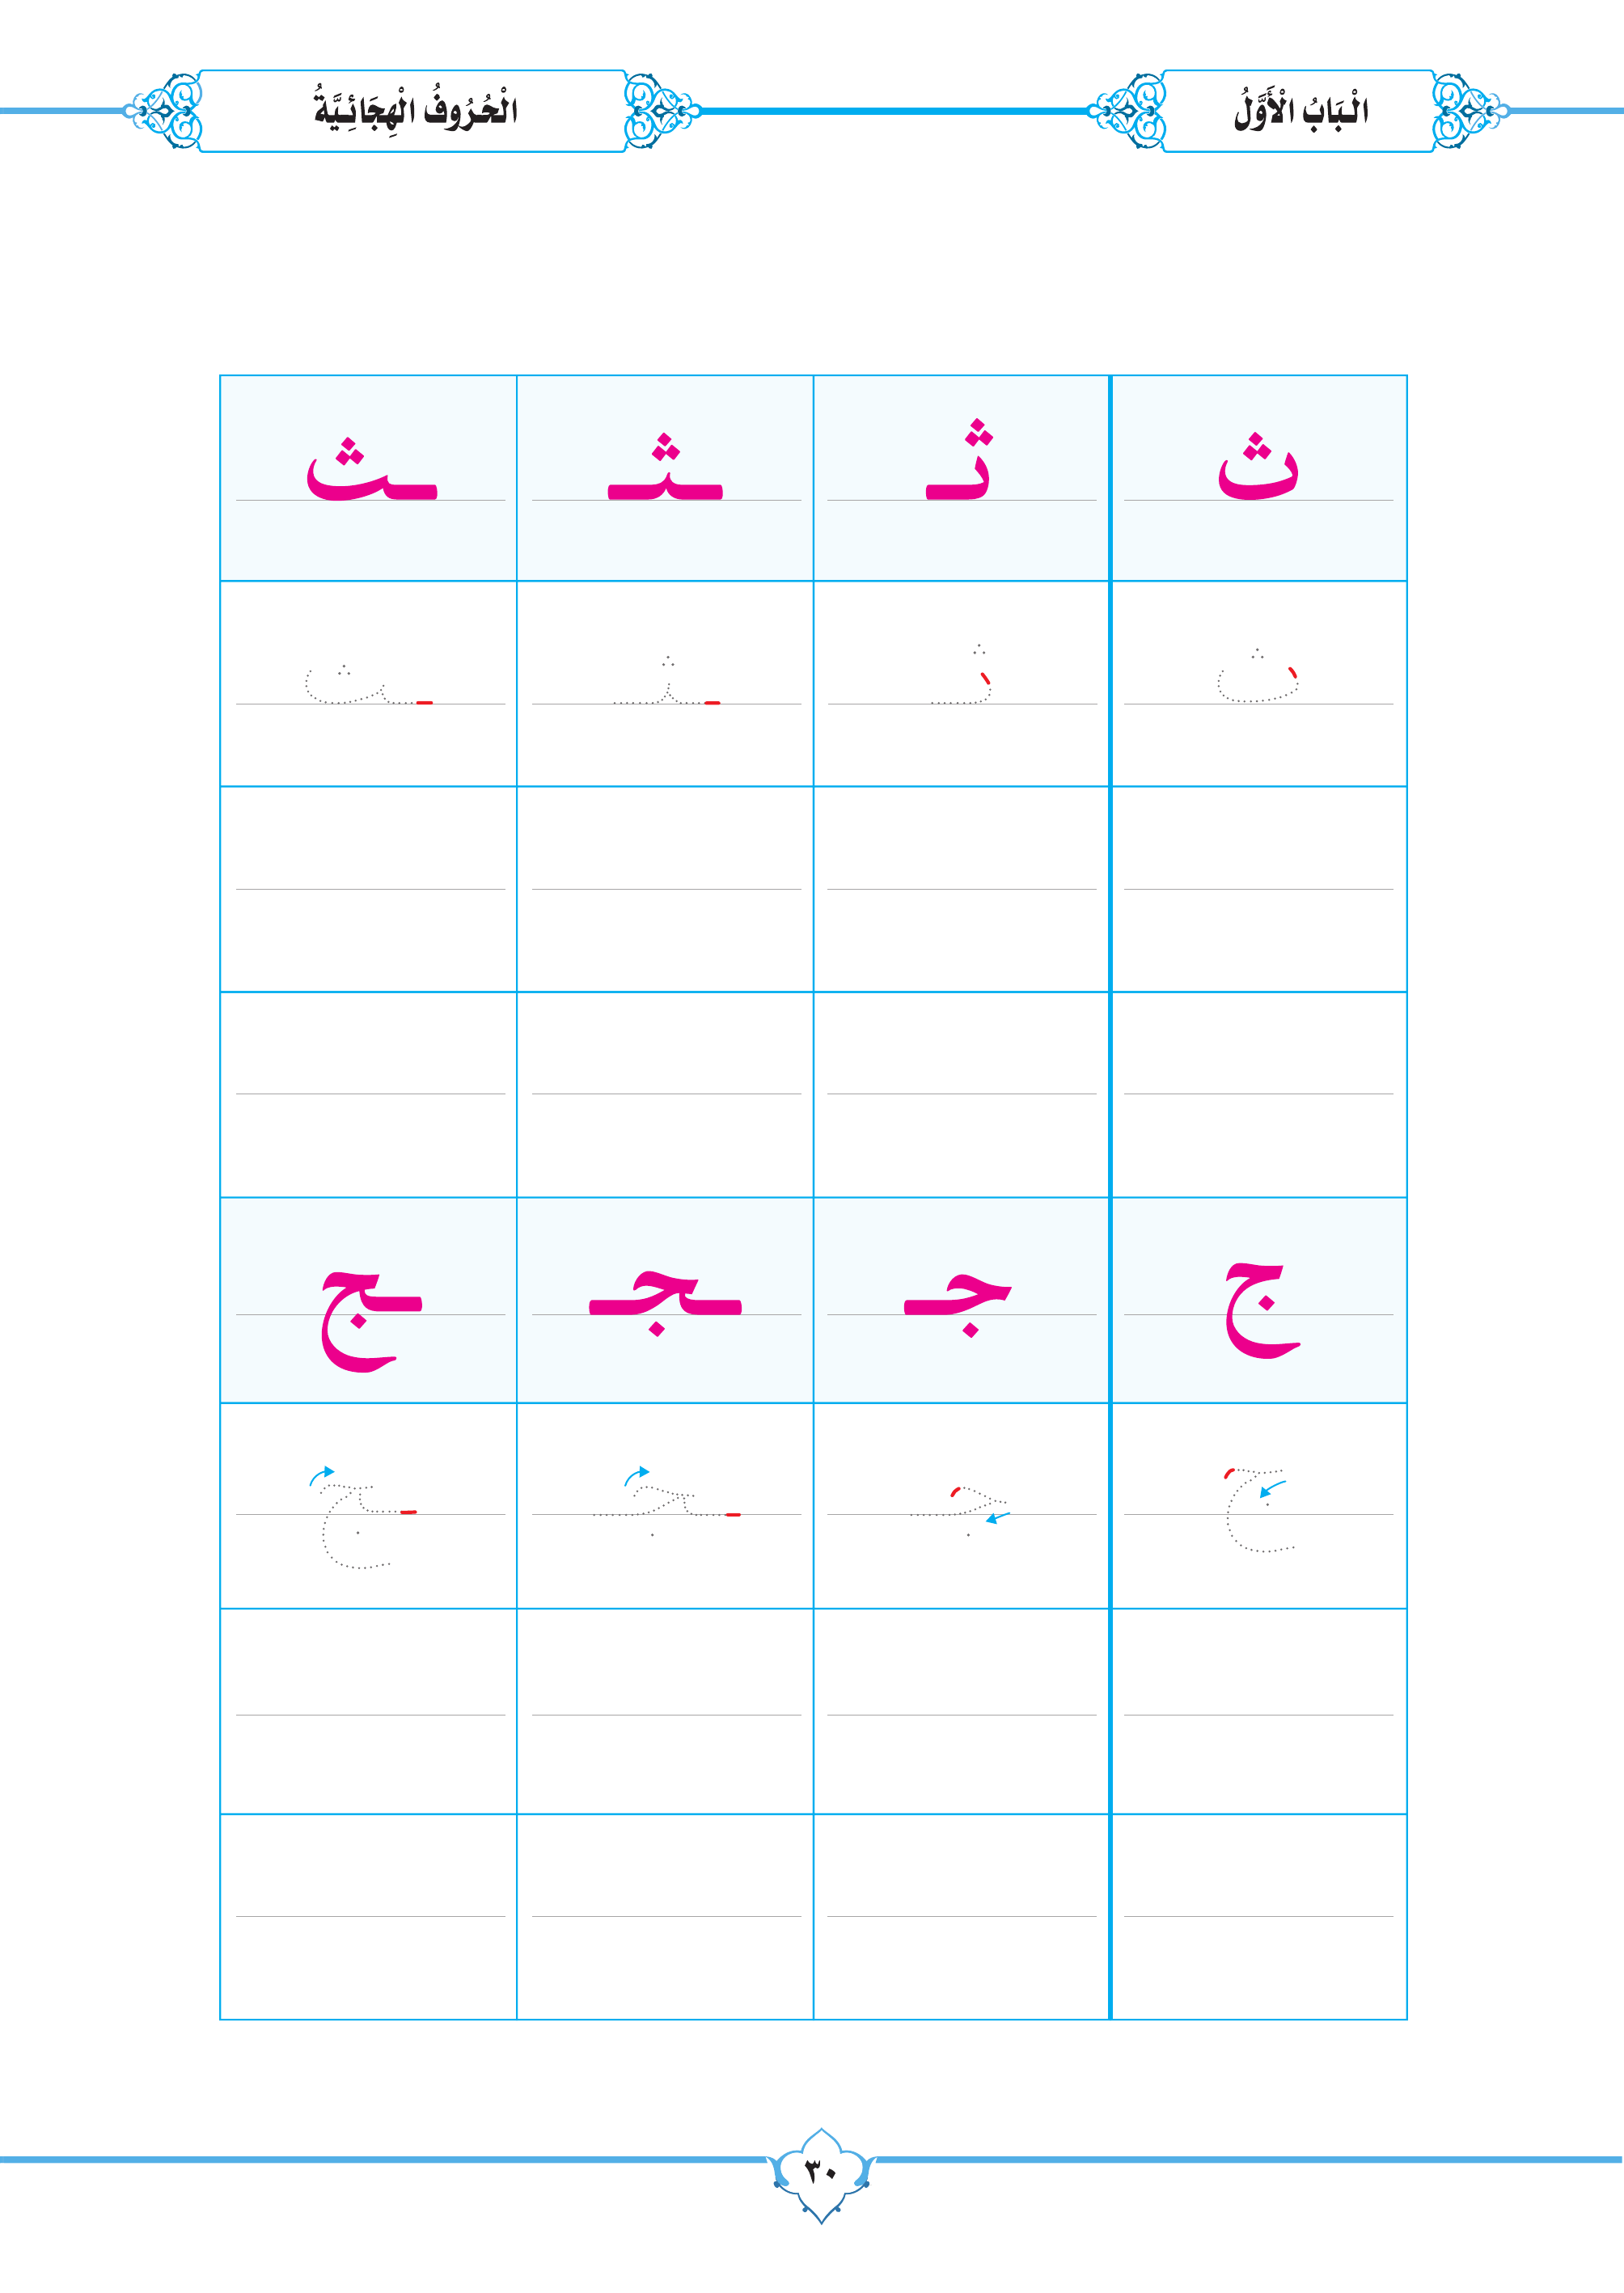 الْبَابُ الْأَوَّلُ
الْحُرُوفُ الْهِجَائِيَّةُ
ث ثـ ـثـ ـث
ث ثـ ـثـ ـث
ج جـ ـجـ ـج
ج جـ ـجـ ـج
٣٠